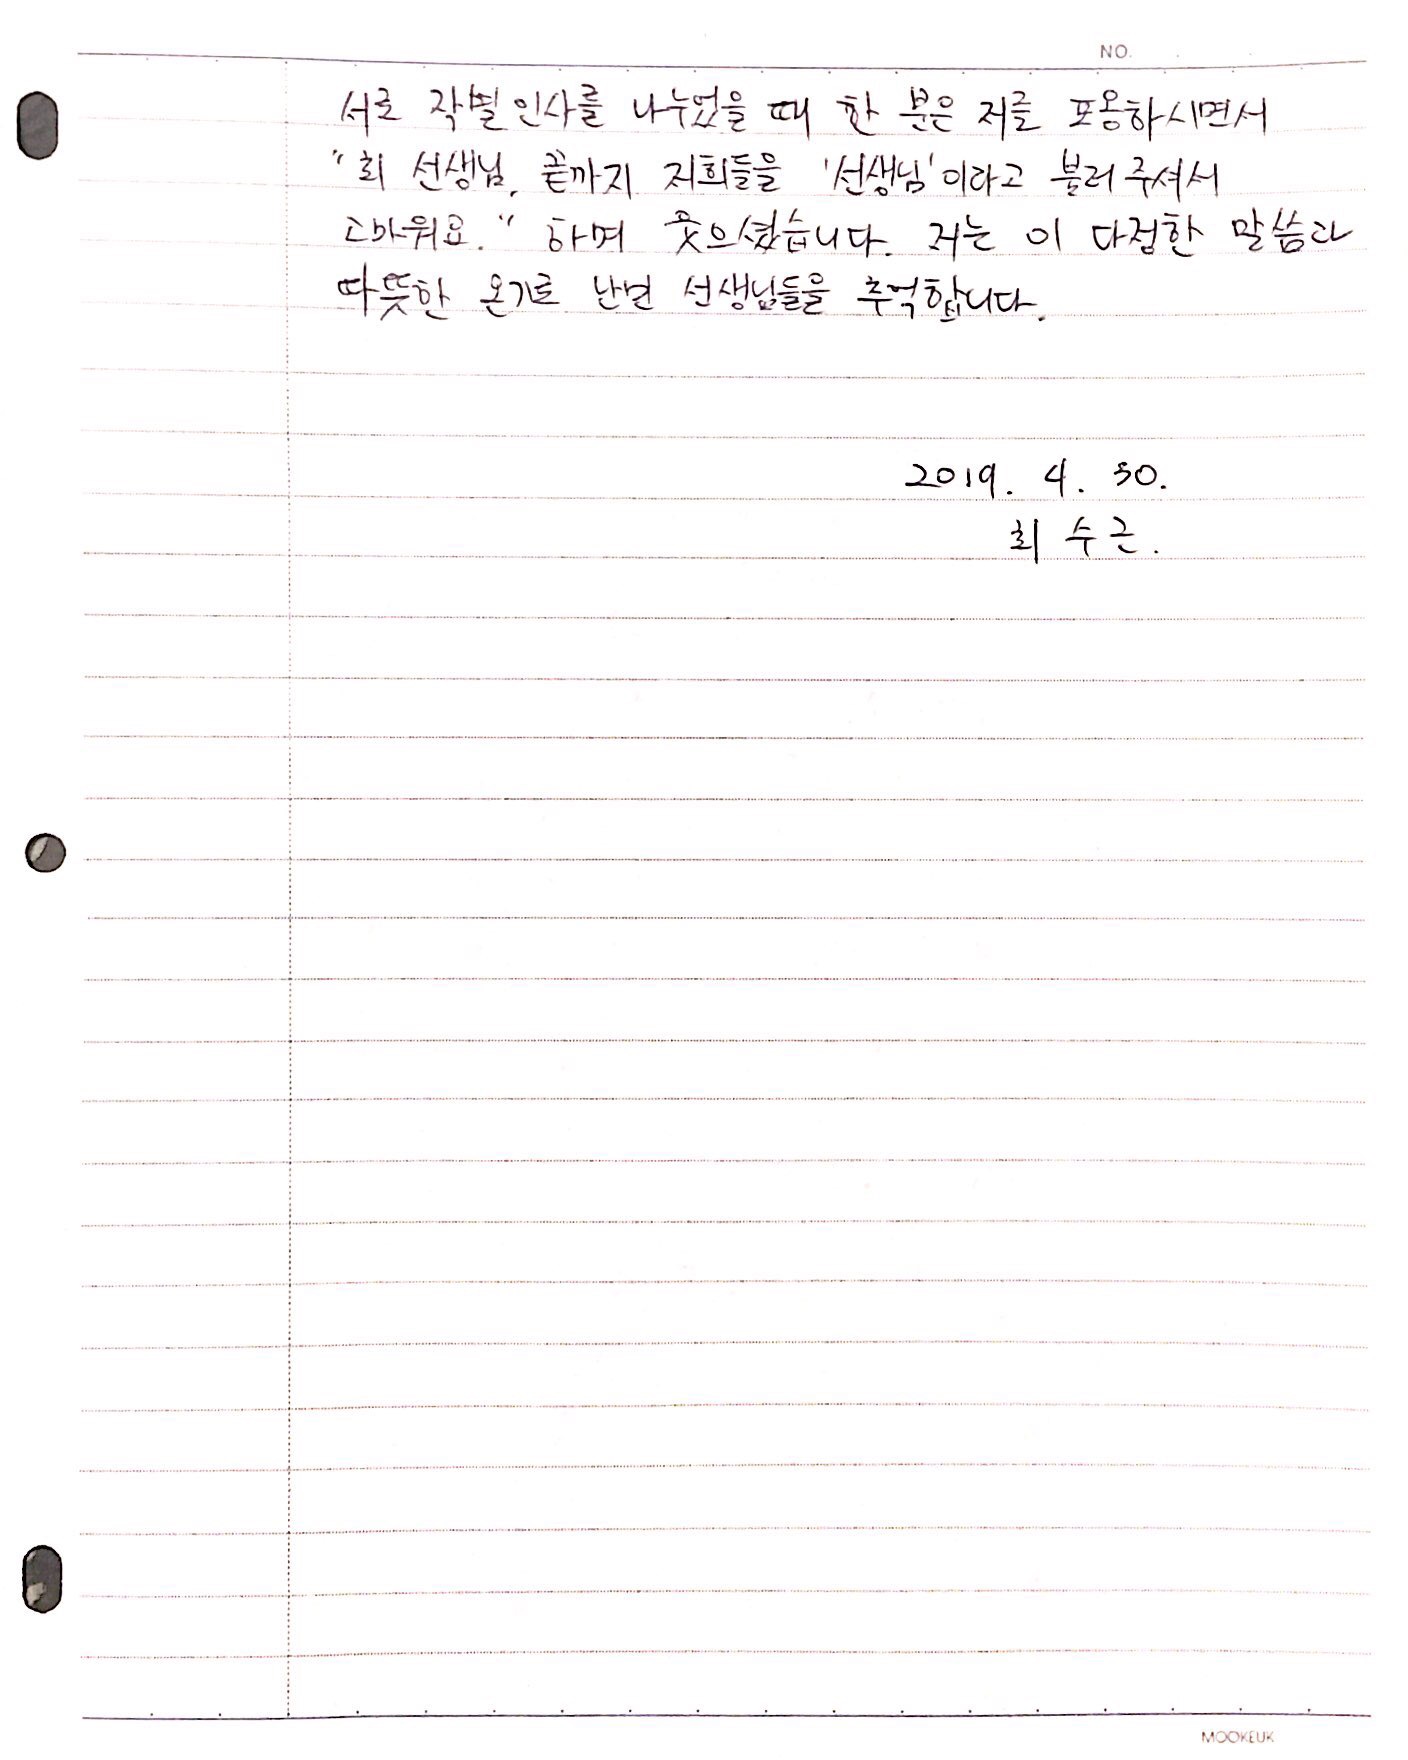 NO.
서로 작별 인사를 나누었을 때 한 분은 저를 포옹하시면서
"최 선생님, 끝까지 저희들을 '선생님'이라고 불러 주셔서
고마워요." 하며 웃으셨습니다. 저는 이 다정한 말씀과
따뜻한 온기로 난민 선생님들을 추억합니다.
2019. 4. 30.
최 수근.
MOOKEUK